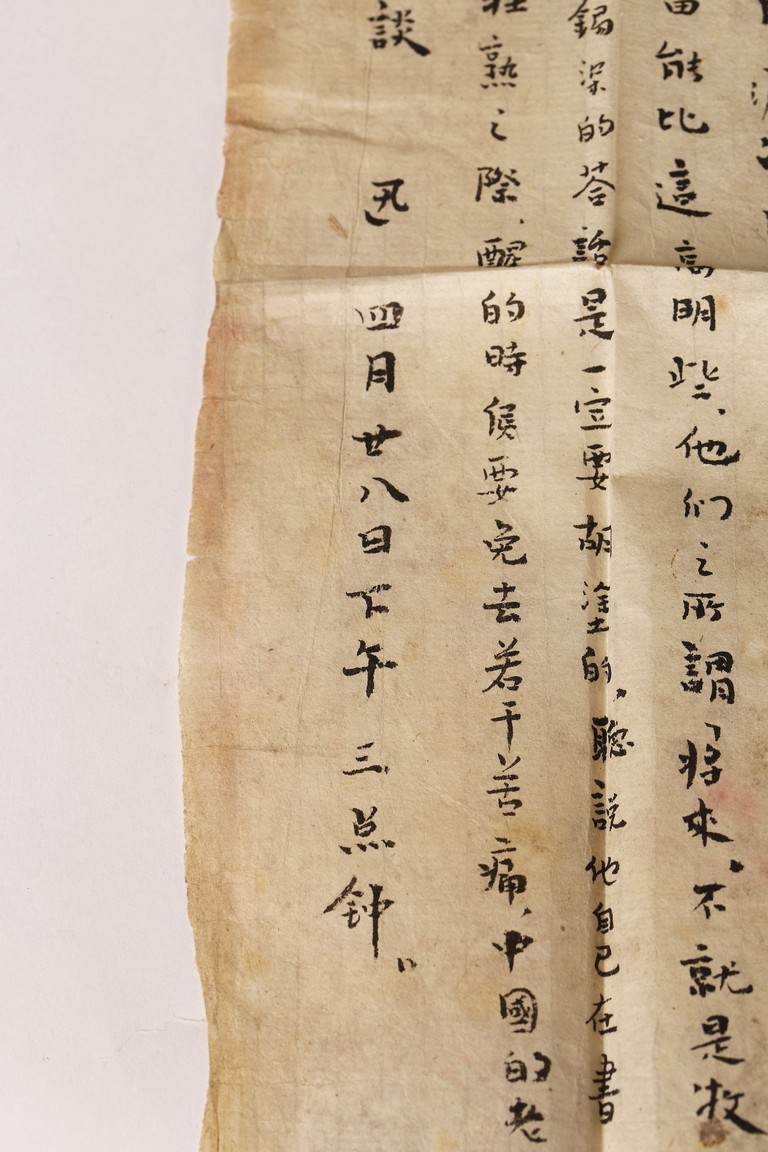 能比這高明些、他们之所謂「將來」不就是牧
的答話是一定要胡塗的，聽說他自己在書
熟之際、醒的時候要免去若干苦痛、中國的老
談 迅 四月廿八日下午三点钟。